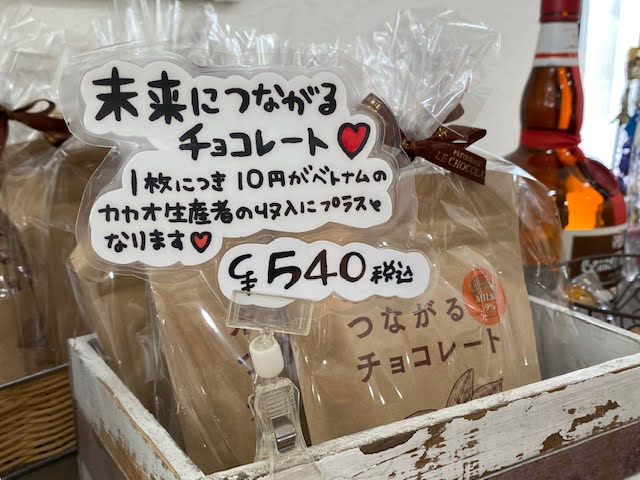 未来につながる
チョコレート
1枚につき10円がベトナムの
カカオ生産者の収入にプラスと
なります
¥540税込
LE CHOCOLA
MILK
つながる
チョコレート